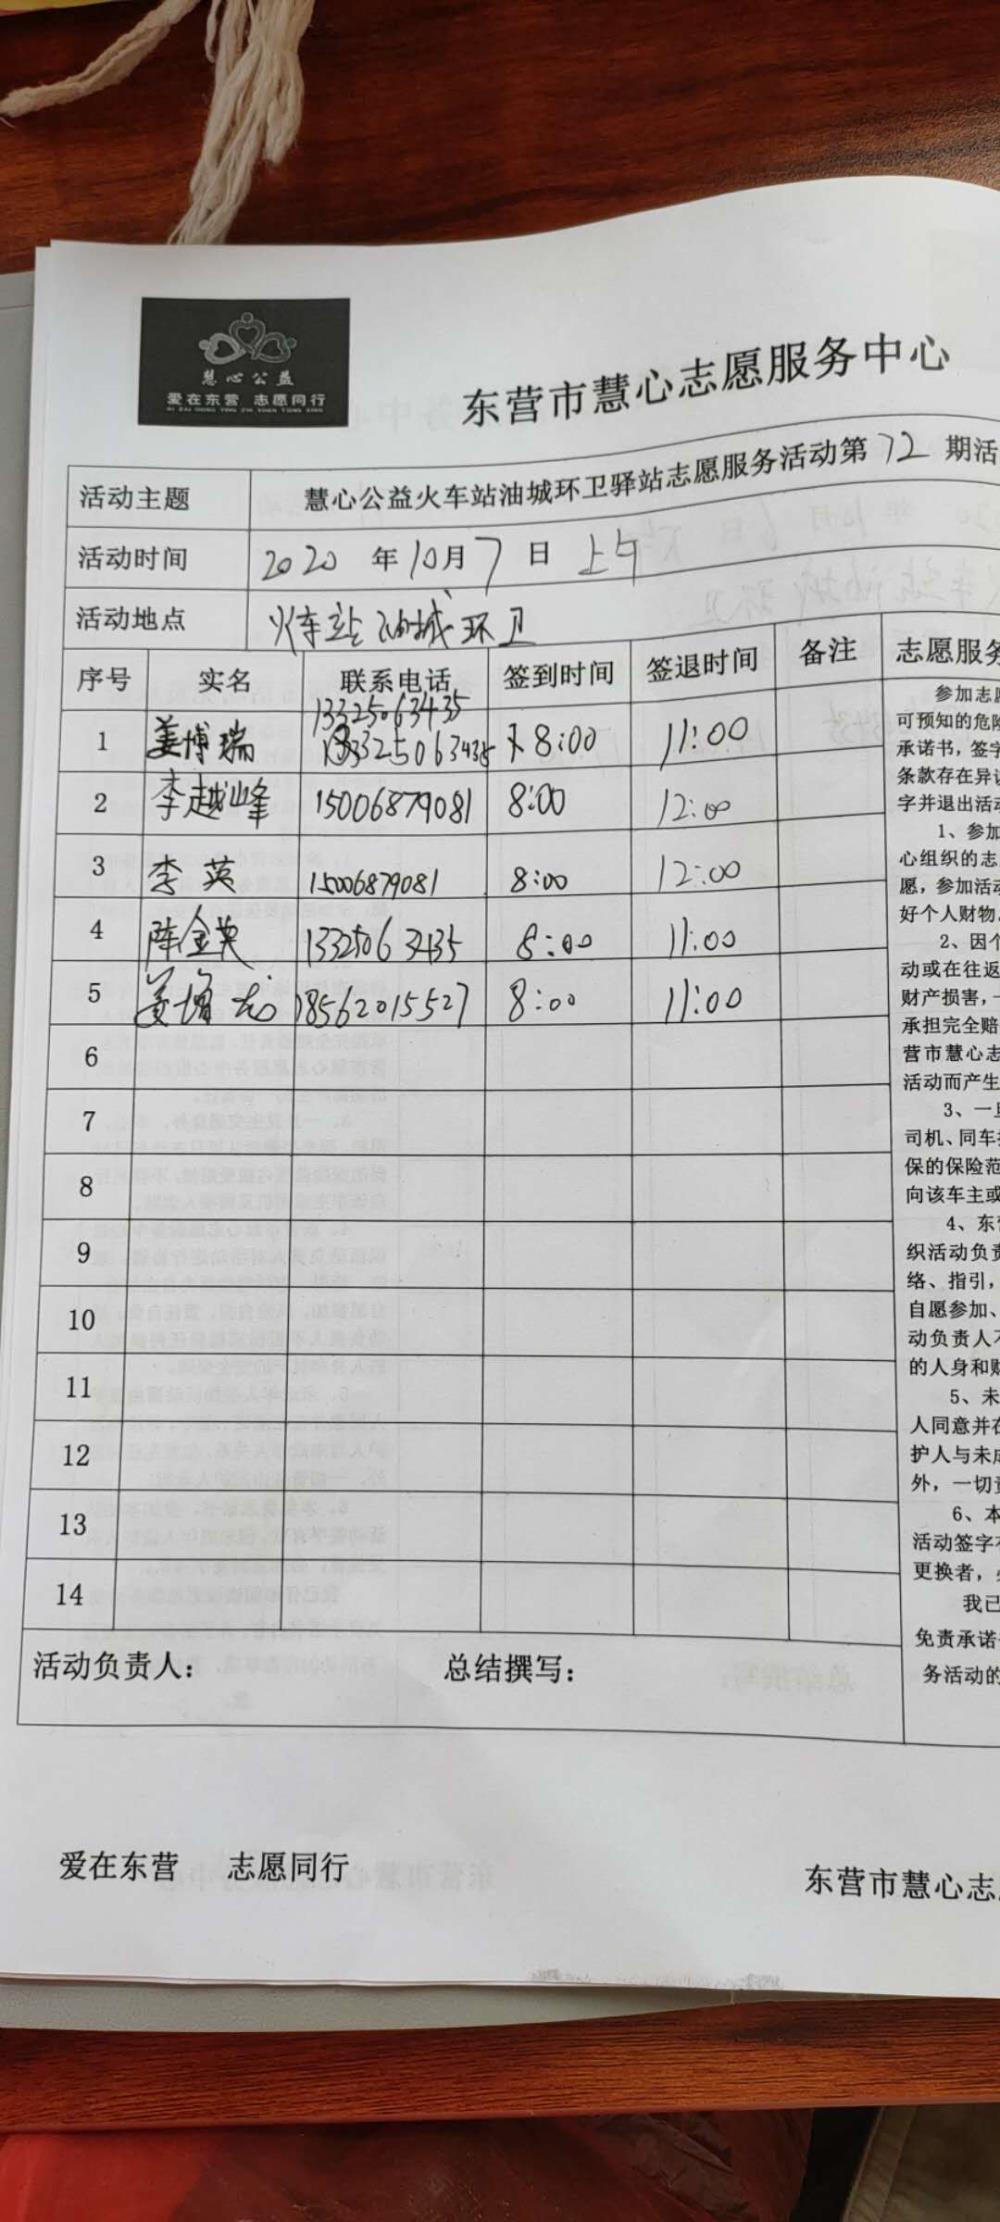 慧心公益
爱在东营 志愿同行
AI ZAI DONG YING ZHI YUAN TONG XING
东营市慧心志愿服务中心
活动主题 慧心公益火车站油城环卫驿站志愿服务活动第72期活
活动时间 2020年10月7日 上午
活动地点 火车站油城环卫
序号 实名 联系电话 签到时间 签退时间 备注 志愿服务
13325063435
1 姜博瑞 13325063435 8:00 11:00
2 李越峰 15006879081 8:00 12:00
3 李英 15006879081 8:00 12:00
4 陈金英 13325063435 8:00 11:00
5 姜增龙 18562015527 8:00 11:00
6
7
8
9
10
11
12
13
14
活动负责人： 总结撰写：
参加志愿
可预知的危险
承诺书，签字
条款存在异议
字并退出活动
1、参加
心组织的志
愿，参加活动
好个人财物
2、因个
动或在往返
财产损害，一
承担完全赔
营市慧心志
活动而产生
3、一旦
司机、同车
保的保险范
向该车主或
4、东营
织活动负责
络、指引，
自愿参加、
动负责人不
的人身和财
5、未
人同意并在
护人与未成
外，一切责
6、本
活动签字有
更换者，
我已
免责承诺
务活动的
爱在东营 志愿同行
东营市慧心志